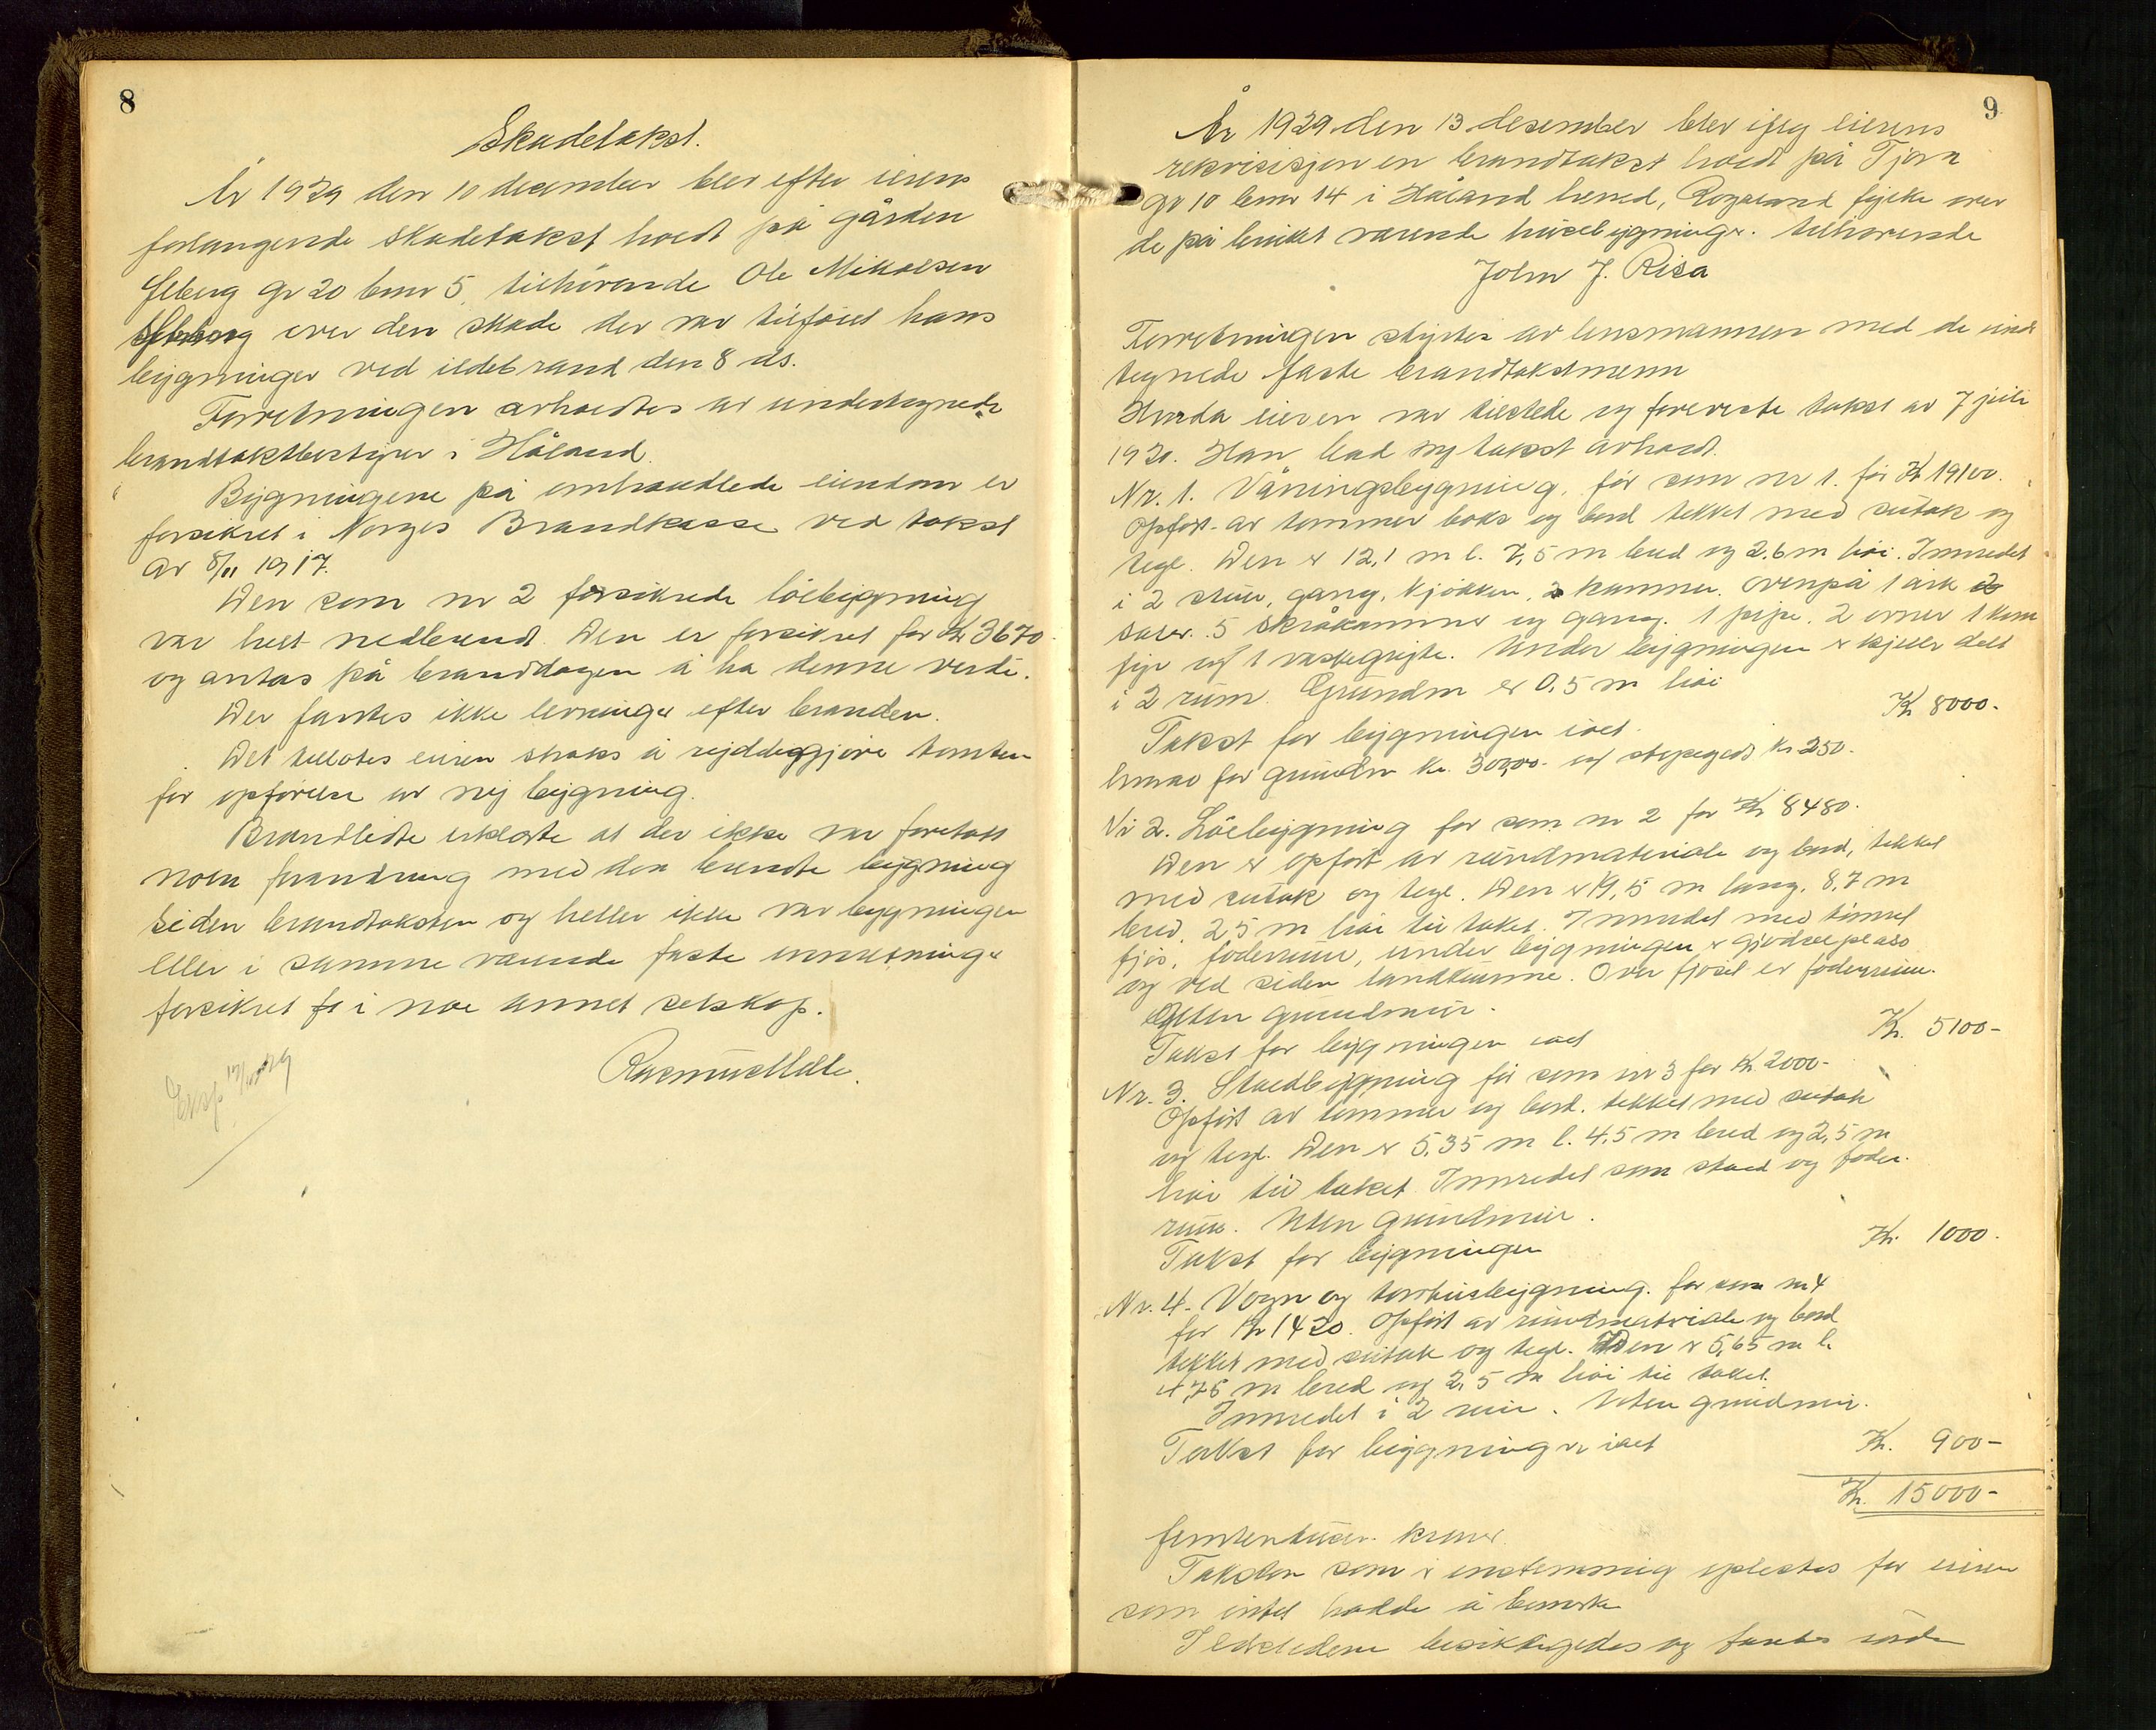 8
Skadetakst.
År 1929 den 10 desember blev efter eierens
forlangende skadetakst holdt på gården
Gr 20 bnr 5, tilhörende Ole Mikalsen
over den skade der var tilföiet hans
bygninger ved ildebrand den 8 ds.
Forretningen avholdtes av undertegnede
brandtakstbestyrer i Håland.
Bygningene på omhandlede eiendom er
forsikret i Norges Brandkasse ved takst
av 8/11 1917.
Den som nr 2 forsikrede löebygning
var helt nedbrendt. Den er forsikret for Kr 3670
og antas på branddagen å ha denne verdi.
Der fantes ikke levninger efter branden.
Det tillotes eieren straks å ryddiggjöre tomten
for opförelse av ny bygning.
Brandlidte erklærte at der ikke var foretatt
noen forandring med den brendte bygning
siden brandtaksten og heller ikke var bygningen
eller i samme værende faste innretninger
forsikret i noe annet selskap.
Rasmus
9
År 1929 den 13 desember blev ifölg eierens
rekvisisjon en brandtakst holdt på Tjora
gr 10 bnr 14 i Håland herred, Rogaland fylke over
de på bruket værende husebygninger. tilhörende
John J. Risa
Forretningen styrtes av lensmannen med de under
tegnede faste brandtakstmenn
eieren var tilstede og foreviste takst av 7 juli
1920. Han bad ny takst avholdt.
Nr. 1. Våningsbygning, för som nr 1. for Kr 19100.
Opfört av tömmer boks og bord tekket med sutak og
tegl. Den er 12,1 m l. 7,5 m bred og 2,6 m höi. Innredet
i 2 stuer, gang, kjökken, 2 kammer. Ovenpå 1 ark
saler. 5 skråkammer og gang. 1 pipe. 2 ovner 1 kom
fyr og 1 vaskegryte. Under bygningen er kjeller delt
i 2 rum. Grundm er 0,5 m höi
Takst for bygningen ialt Kr 8000.-
herav for grundm Kr. 300,00- og Kr 250.-
Nr 2. Löebygning for som nr 2 for Kr 8480.
Den er opfört av rundmateriale og bord, tekket
med sutak og tegl. Den er 19,5 m lang. 8,7 m
bred, 2,5 m höi til taket. Innredet med tömret
fjös, foderrum, under bygningen er gjödselplass
og ved siden landkumme. Over fjöset er foderrum.
Uten grundmur.
Takst for bygningen ialt Kr. 5100-
Nr. 3. Stoldbygning för som nr 3 for Kr 2000-
Opfört av tömmer og bord. tekket med sutak
og tegl. Den er 5,35 m l. 4,5 m bred og 2,5 m
höi til taket. Innredet som stold og foder.
rum. Uten grundmur.
Takst for bygningen Kr. 1000.
Nr. 4. Vogn og torvhusbygning. for som nr 4
for Kr 1420. Opfört av rundmateriale og bord
tekket med sutak og tegl. Den er 5,65 m l.
4,75 m bred og 2,5 m höi til taket.
Innredet i 2 rum. Uten grundmur.
Takst for bygningen ialt Kr. 900-
Kr. 15000-
femtentusen kroner.
Taksten som er enstemmig oplestes for eieren
som intet hadde å bemerke
Ildstedene besiktigedes og fantes i orden